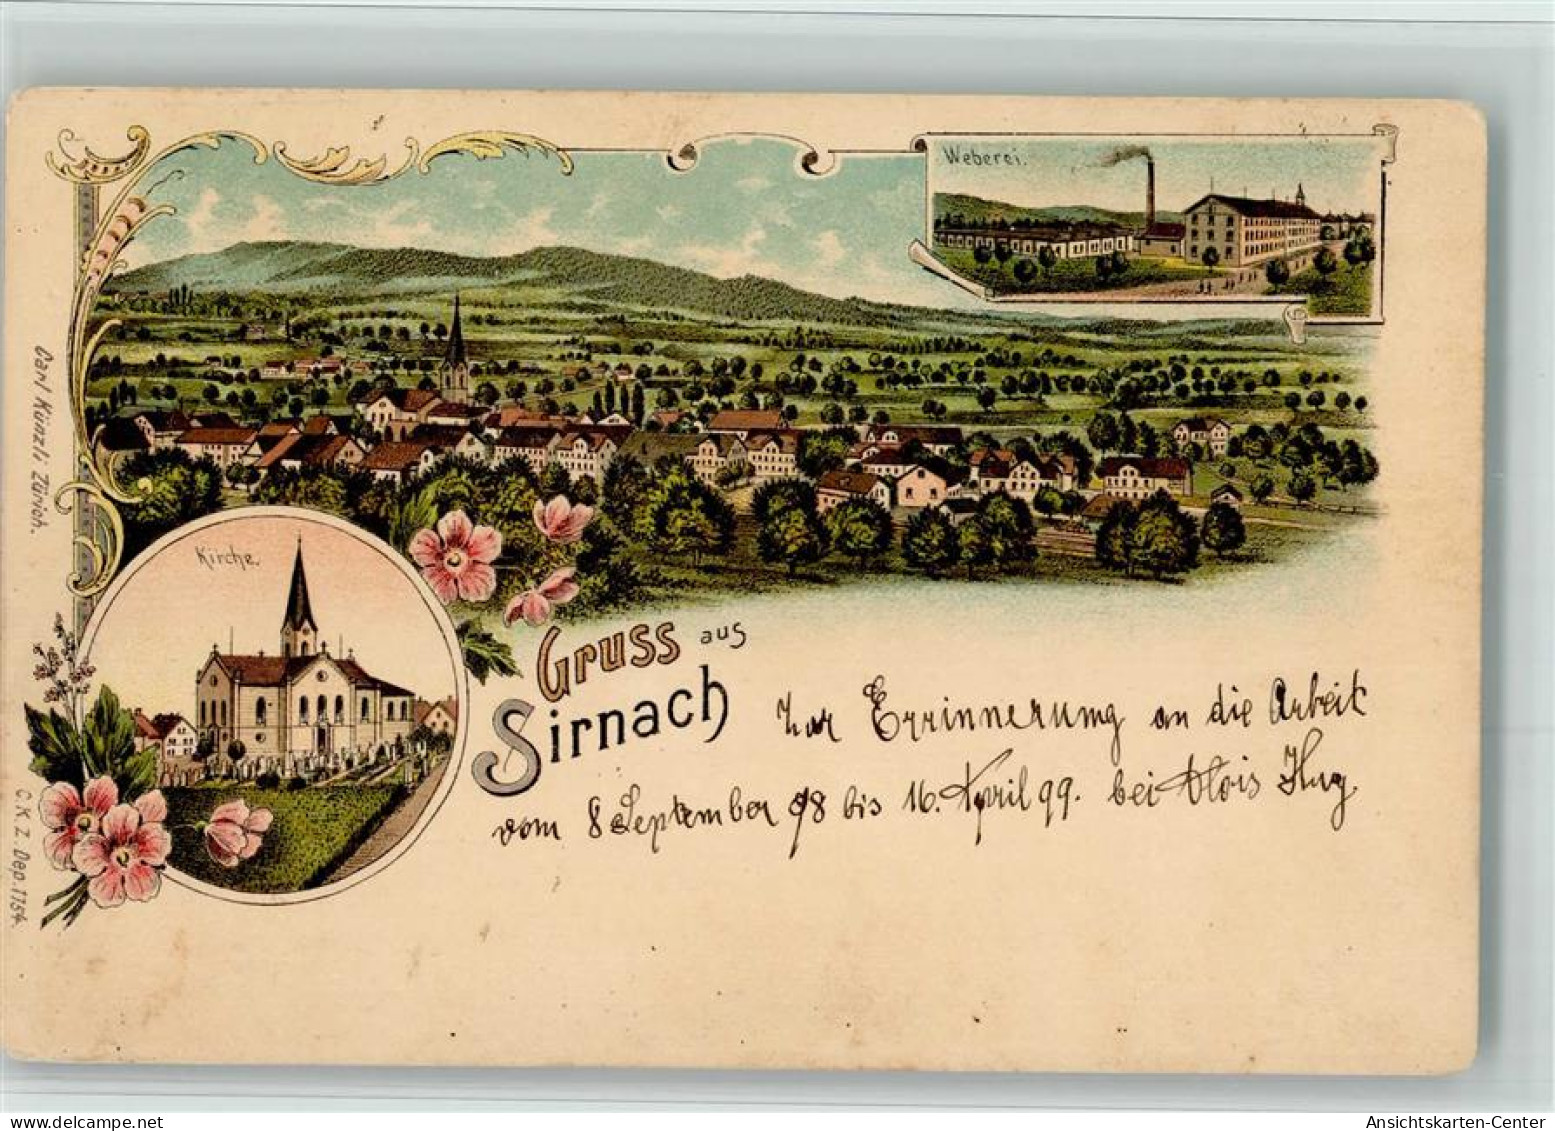 Weberei.
Kirche.
Carl Künzli Zürich.
C.K.Z. Dep. 1154.
Gruss aus
Sirnach
Zur Errinnerung an die Arbeit
vom 8 September 98 bis 16. April 99. bei Alois Hug.
delcampe.net
Ansichtskarten-Center